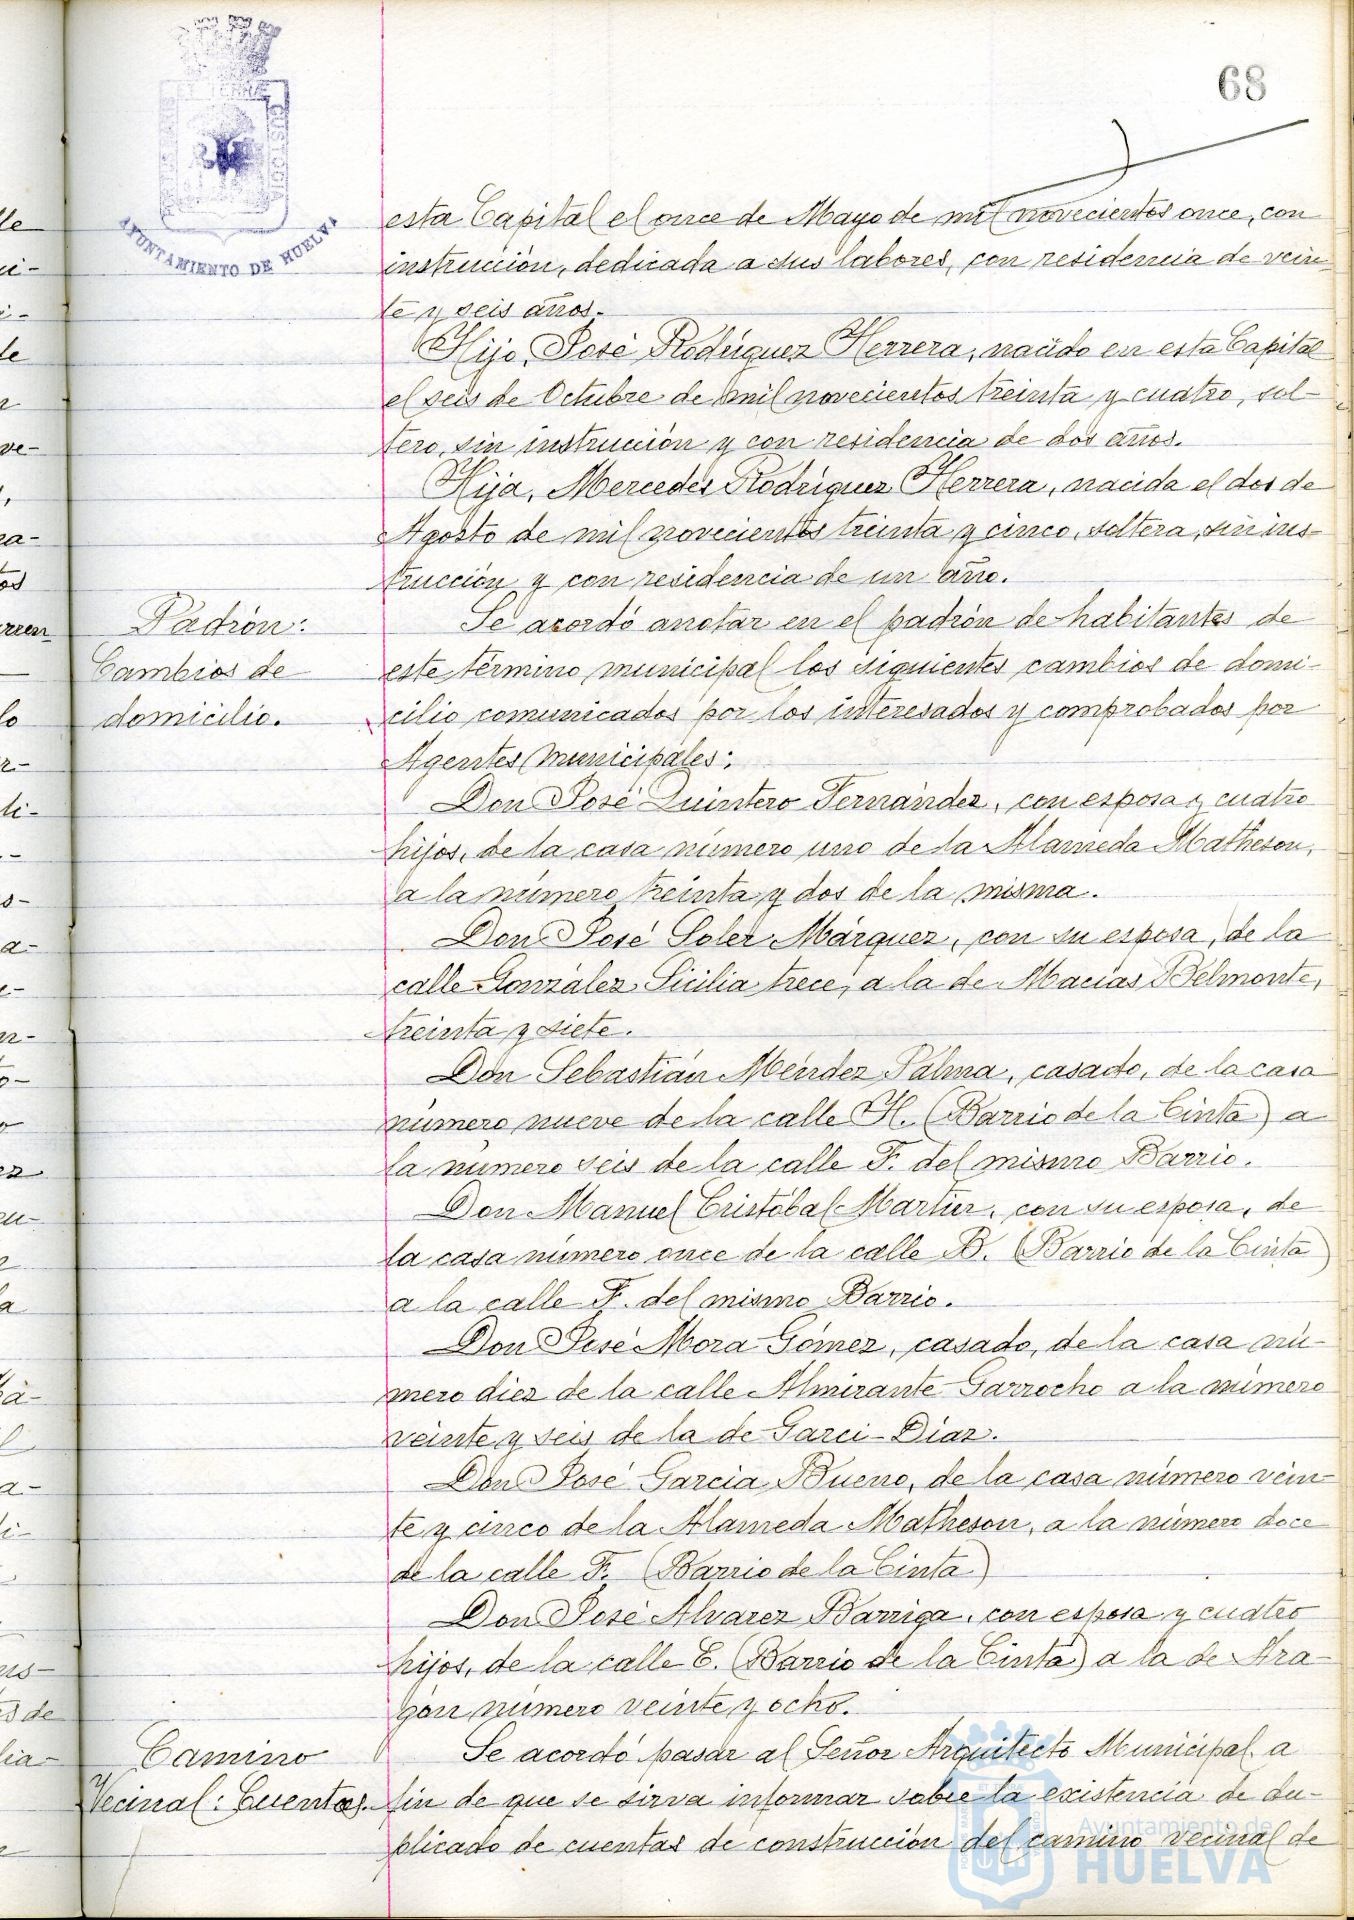 68
PORTUS MARIS ET TERRÆ CUSTODIA
AYUNTAMIENTO DE HUELVA
esta Capital el once de Mayo de mil novecientos once, con
instrucción, dedicada a sus labores, con residencia de vein-
te y seis años.
Hijo, José Rodríguez Herrera, nacido en esta Capital
el seis de Octubre de mil novecientos treinta y cuatro, sol-
tero, sin instrucción y con residencia de dos años.
Hija, Mercedes Rodríguez Herrera, nacida el dos de
Agosto de mil novecientos treinta y cinco, soltera, sin ins-
trucción y con residencia de un año.
Padrón:
Cambios de
domicilio.
Se acordó anotar en el padrón de habitantes de
este término municipal los siguientes cambios de domi-
cilio comunicados por los interesados y comprobados por
Agentes municipales:
Don José Quintero Fernández, con esposa y cuatro
hijos, de la casa número uno de la Alameda Matheson,
a la número treinta y dos de la misma.
Don José Soler Márquez, con su esposa, de la
calle González Sicilia trece, a la de Macías Belmonte,
treinta y siete.
Don Sebastián Méndez Palma, casado, de la casa
número nueve de la calle H. (Barrio de la Cinta) a
la número seis de la calle F. del mismo Barrio.
Don Manuel Cristóbal Martin, con su esposa, de
la casa número once de la calle B. (Barrio de la Cinta)
a la calle F. del mismo Barrio.
Don José Mora Gómez, casado, de la casa nú-
mero diez de la calle Almirante Garrocho a la número
veinte y seis de la de Garci-Díaz.
Don José García Bueno, de la casa número vein-
te y cinco de la Alameda Matheson, a la número doce
de la calle F. (Barrio de la Cinta)
Don José Alvarez Barriga, con esposa y cuatro
hijos, de la calle E. (Barrio de la Cinta) a la de Ara-
gón número veinte y ocho.
Camino
Vecinal: Cuentas.
Se acordó pasar al Señor Arquitecto Municipal a
fin de que se sirva informar sobre la existencia de du-
plicado de cuentas de construcción del camino vecinal de
Ayuntamiento de
HUELVA